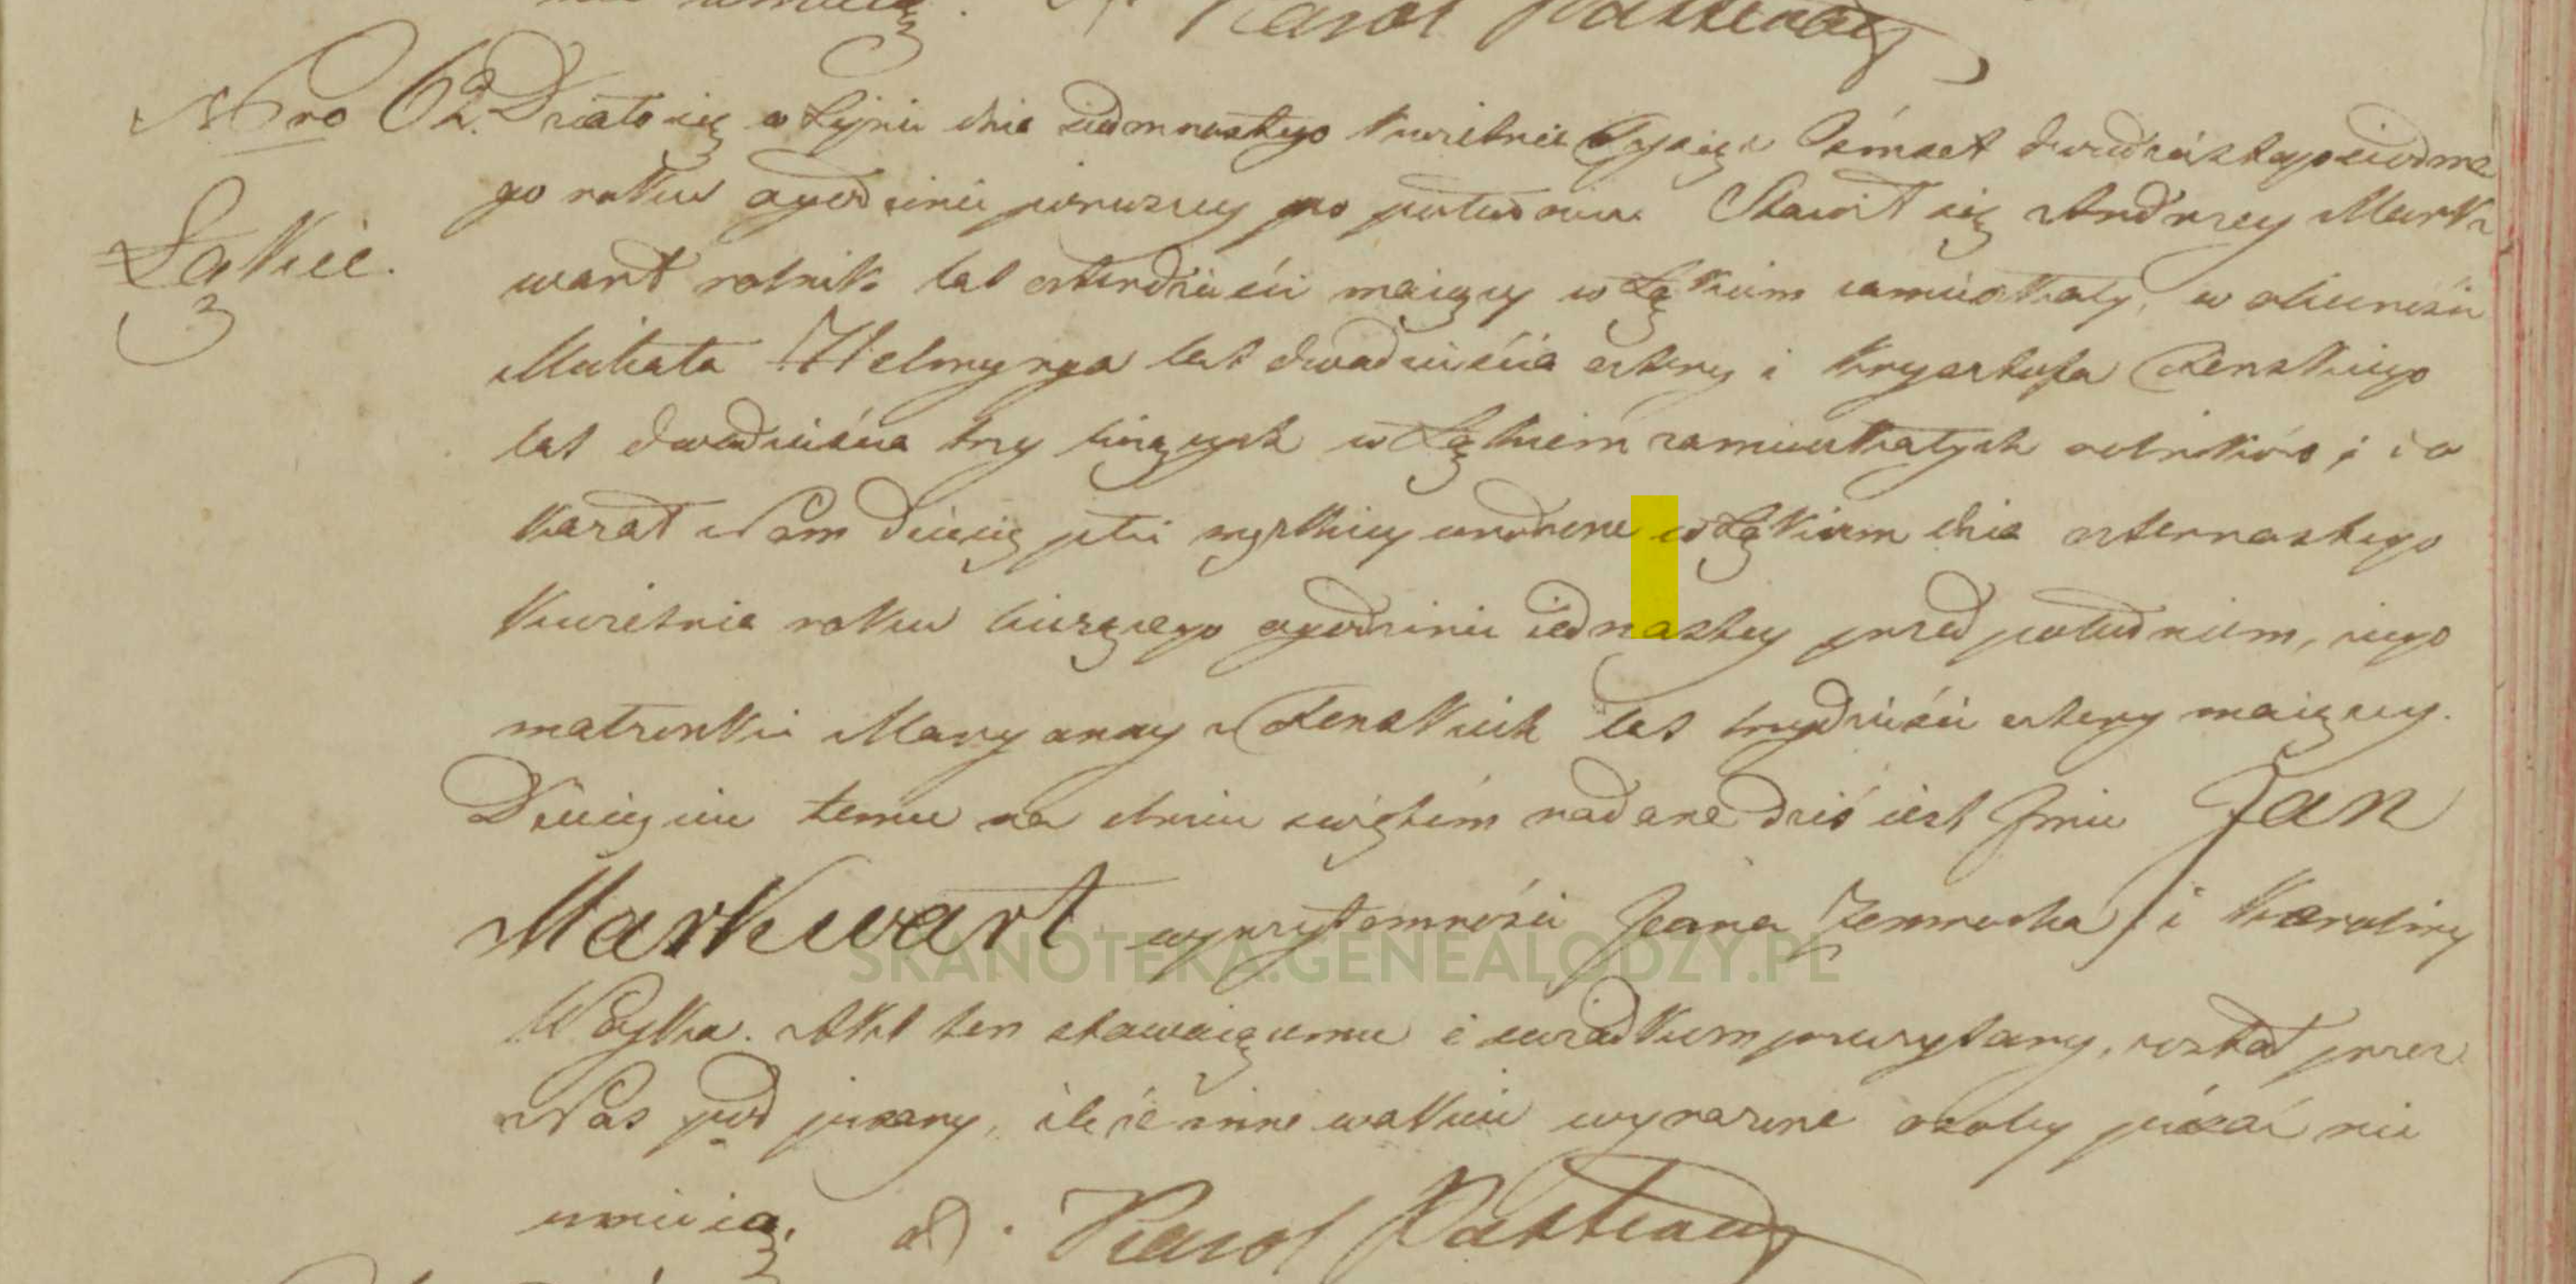 nie umieią. X. Karol
Nro 62. Działo się w dnia siedmnastego Kwietnia Tysiąc Ośmset dwudziestego siódme
go roku o godzinie pierwszey po południu Stawił się Andrzey Mark
Łąkie.
wart rolnik lat czterdzieści maiący w Łąkiem zamieszkały, w obecności
Michała Helmynga lat dwadzieścia cztery i Krysztofa
lat dwadzieścia trzy liczących w Łąkiem zamieszkałych rolników; i o
kazał Nam dziecię płci męzkiey urodzone w Łąkiem dnia czternastego
Kwietnia roku bieżącego o godzinie iednastey przed południem, z iego
małżonki Maryanny z lat trzydzieści cztery maiącey.
Dziecięciu temu na chrzcie świętém nadane dziś iest Jmie Jan
Markwart w przytomności Jana i Karoliny
Akt ten stawaiącemu i świadkom przeczytany, został przez
Nas pod pisany, ile że inne w akcie wyrażone osoby pisać nie
umieią. X. Karol
SKANOTEKA.GENEALODZY.PL